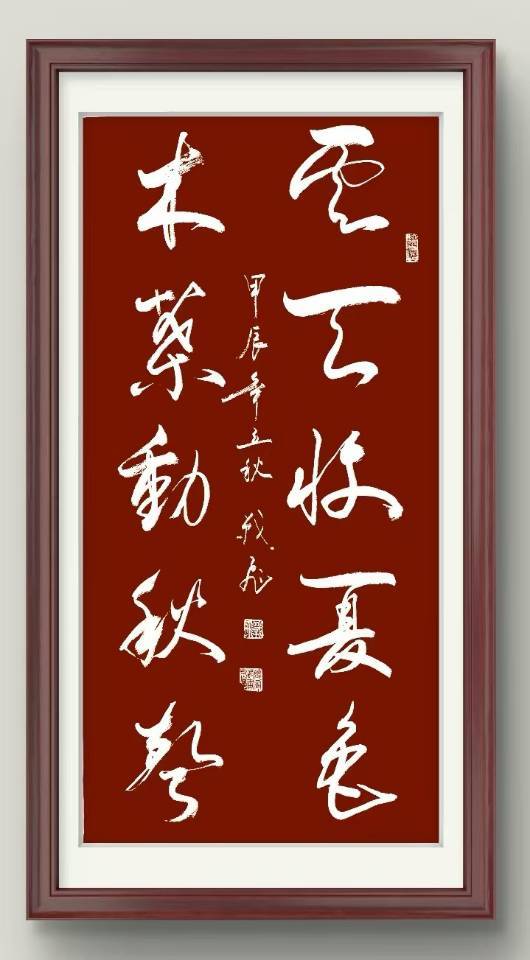 雲天收夏色
木葉動秋聲
甲辰年立秋